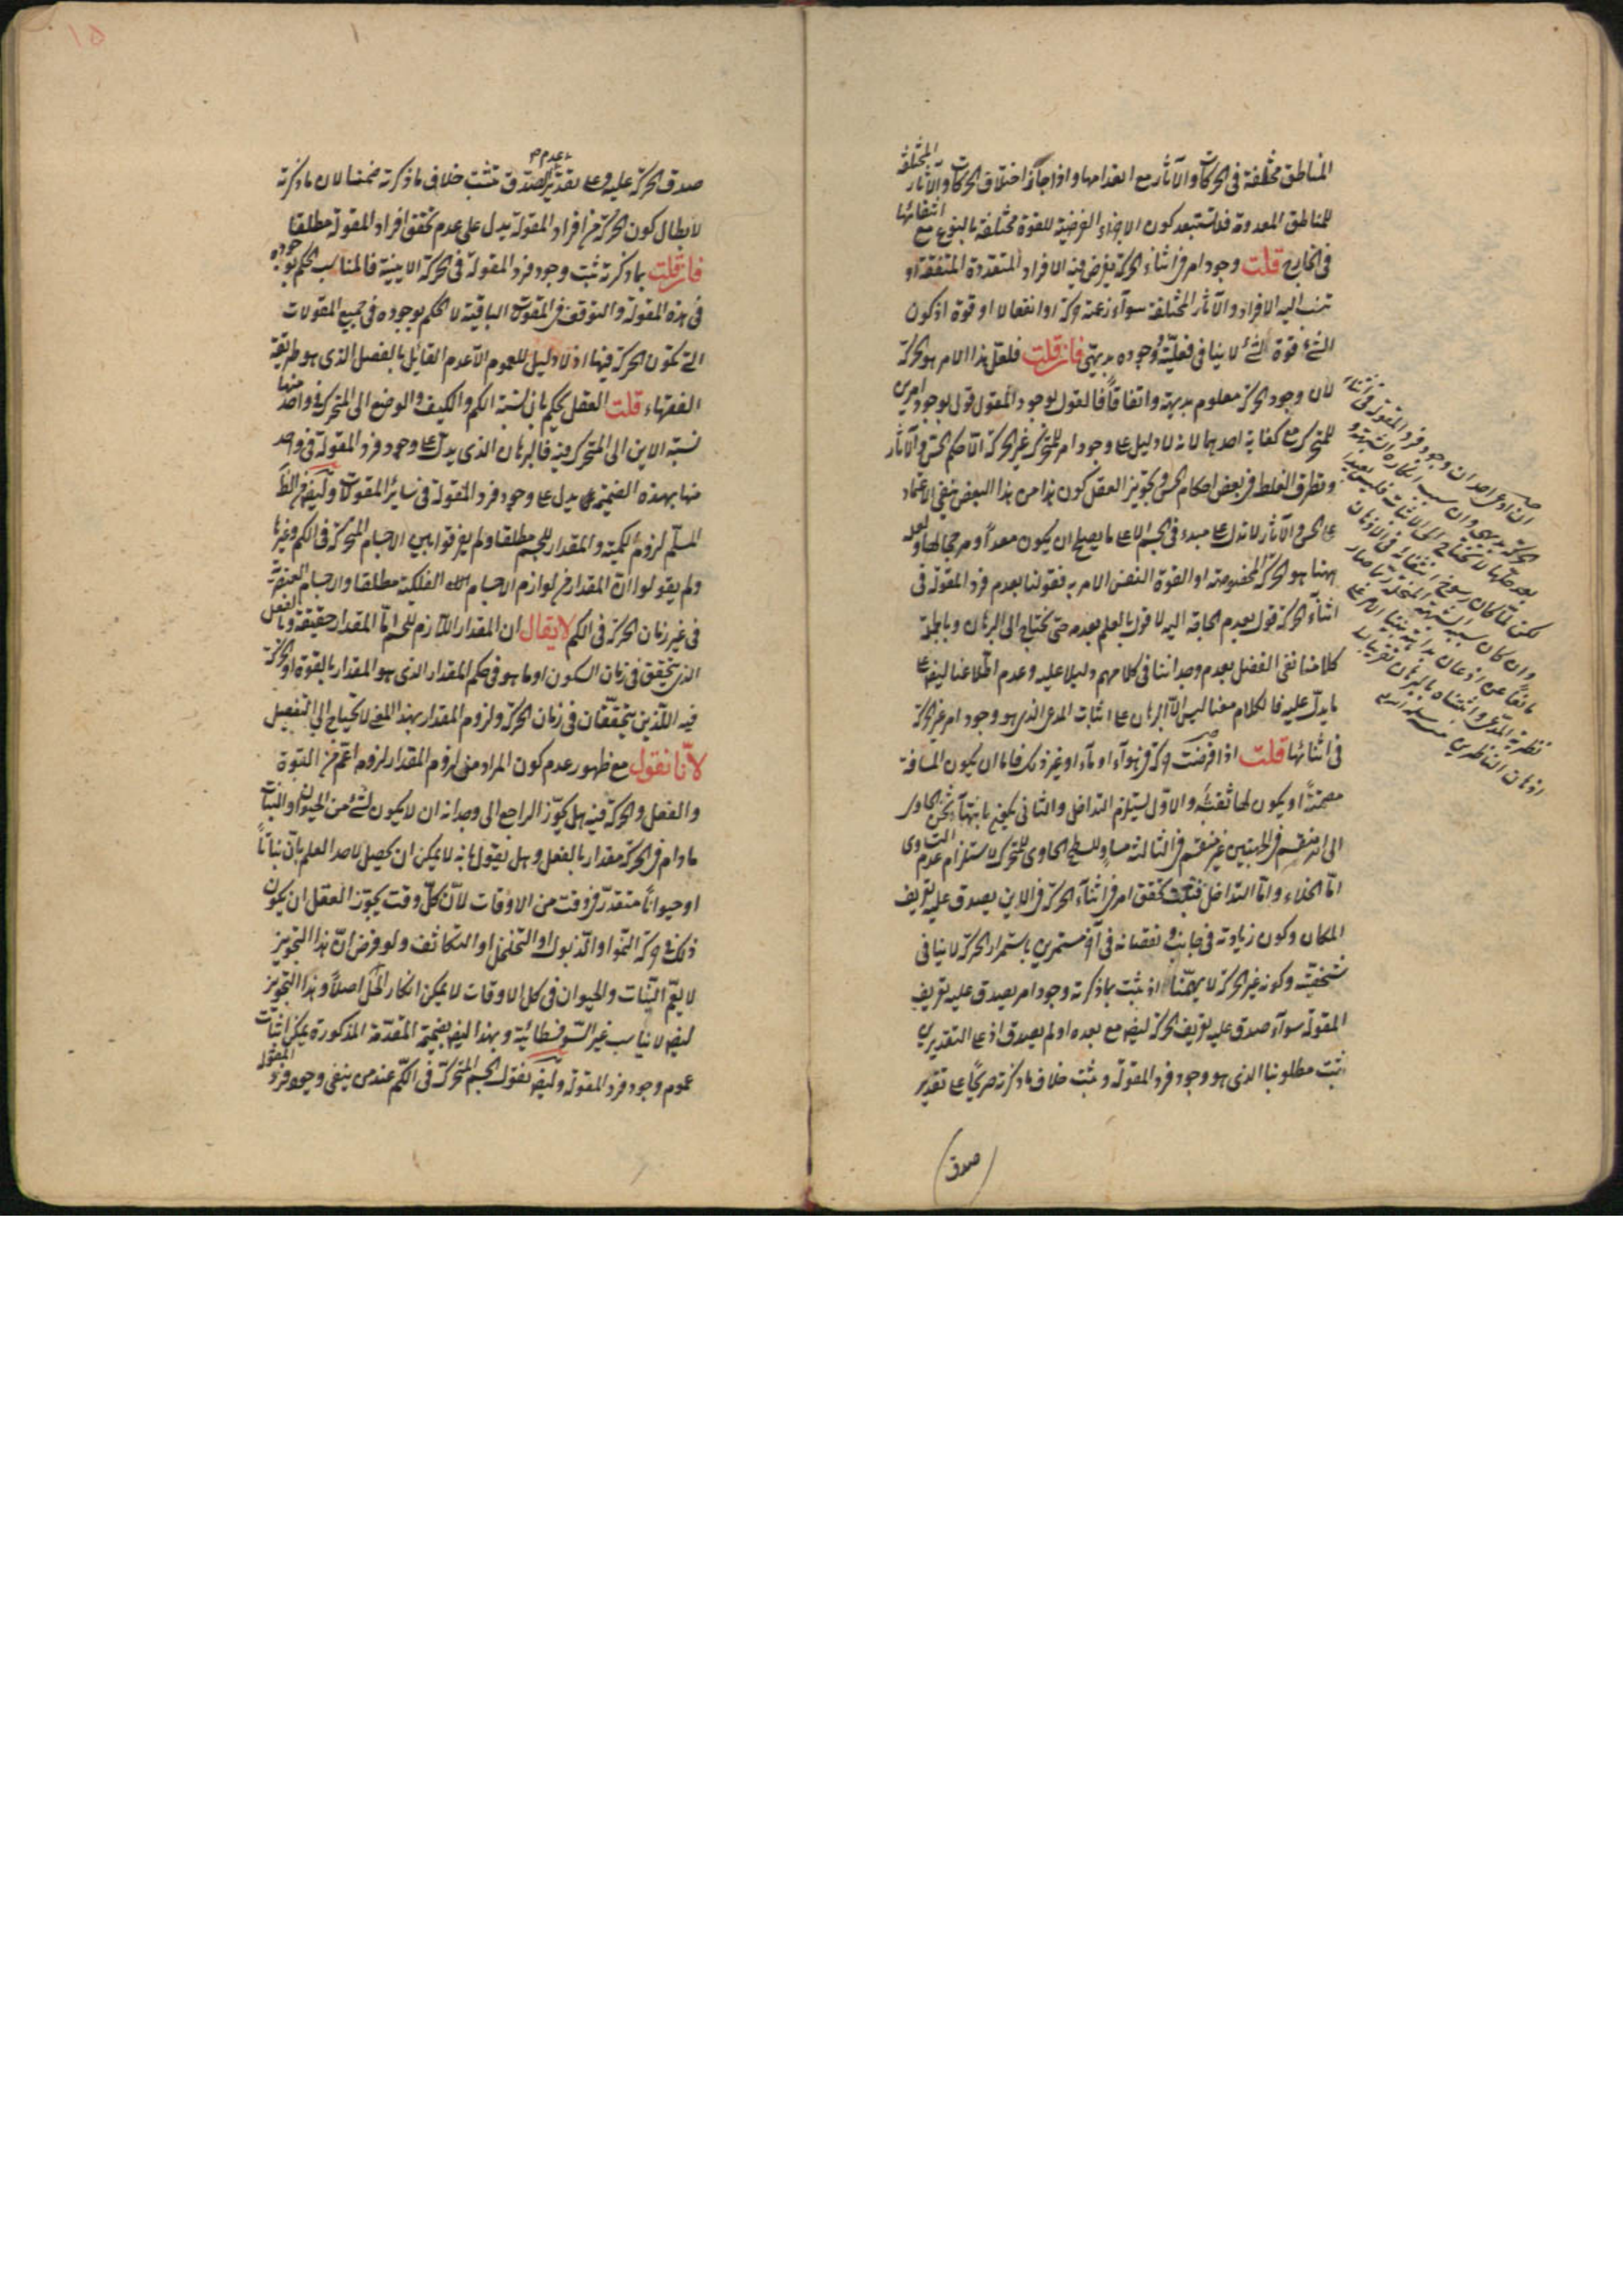 المناطق مختلفة في الحركات والآثار مع انعدامها واذا جاز اختلاف الحركات والآثار المختلفة
للمناطق المعدومة فلا تستبعد كون الاجزاء الفرضية للقوة مختلفة بالنوع مع انتفائها
في الخارج قلت وجود امر في اثناء الحركة يفرض فيه الافراد المتعددة المتفقة او
تنسب اليه الافراد والآثار المختلفة سوآء زعمته حركة او انفعالا او قوة اذ كون
الشئ قوة لشئ لا ينافي فعليته ووجوده بديهي فان قلت فلعل هذا الامر هو الحركة
لان وجود الحركة معلوم بديهة واتفاقاً فالقول بوجود المقول قول بوجود امرين
للمتحرك مع كفاية احدهما لانه لا دليل على وجود امر للمتحرك غير الحركة الا حكم الحس والآثار
وتطرق الغلط في بعض احكام الحس وتجويز العقل كون هذا من هذا البعض ينفي الاعتماد
على الحس والآثار لا تدل على مبدء في الجسم الا على ما يصلح ان يكون معداً ومرجحا لها ولعله
ههنا هو الحركة المخصوصة او القوة النفس الامرية فقولنا بعدم فرد المقولة في
اثنآء الحركة قول بعدم الحاجة اليه لا قول بالعلم بعدمه حتى يحتاج الى البرهان وبالجملة
كلامنا نفي الفضل بعدم وجداننا في كلامهم دليلا عليه وعدم اطلاعنا ايضا على
ما يدل عليه فالكلام معنا ليس الا البرهان على اثبات المدعى الذي هو وجود امر غير الحركة
في اثنائها قلت اذا فرضت حركة في هوآء او مآء او غير ذلك فاما ان يكون المسافة
مصمتة او يكون لها ثقبة والاول يستلزم التداخل والثاني
الى انه منقسم في الجهتين غير منقسم في الثالثة مساو للسطح الحاوي للمتحرك لاستلزام عدم التساوي
اما الخلاء واما التداخل فتحقق امر في اثنآء الحركة في الاين يصدق عليه تعريف
المكان وكون زيادته في جانب ونقصانه في آخر مستمرين باستمرار الحركة لا ينافي
شخصيته وكونه غير الحركة لا يهمنا اذ ثبت بما ذكرته وجود امر يصدق عليه تعريف
المقولة سوآء صدق عليه تعريف الحركة ايضا مع بعده او لم يصدق اذ على التقديرين
ثبت مطلوبنا الذي هو وجود فرد المقولة وثبت خلاف ما ذكرته صريحاً على تقدير
صدق
ان ادعى احد ان وجود فرد المقولة في اثناء
الحركة بديهي وان سبب انكاره الشبهة و
بعد حلها لا يحتاج الى الاثبات فليس بعيدا
لكن لما كان رسوخ انتفائه في الاذهان
وان كان بسبب الشبهة المنحلة ربما صار
مانعاً عن اذعان
اذهان الناظرين
صدق الحركة عليه وعلى تقدير عدم الصدق تثبت خلاف ما ذكرته ضمنا لان ما ذكرته
لابطال كون الحركة من افراد المقولة يدل على عدم تحقق افراد المقولة مطلقا
فان قلت بما ذكرته ثبت وجود فرد المقولة في الحركة الاينية فالمناسب الحكم بوجوده
في هذه المقولة والتوقف في المقولات الباقية لا الحكم بوجوده في جميع المقولات
التي تكون الحركة فيها اذ لا دليل للعموم الا عدم القائل بالفصل الذي هو طريقة
الفقهاء قلت العقل يحكم بان نسبة الكم والكيف والوضع الى المتحرك في واحد منها
نسبة الاين الى المتحرك فيه فالبرهان الذي يدل على وجود فرد المقولة في واحد
منها بهذه الضميمة يدل على وجود فرد المقولة في سائر المقولات وايضا من الظاهر
المسلم لزوم الكمية والمقدار للجسم مطلقا ولم يفرقوا بين الاجسام المتحركة في الكم وغيرها
ولم يقولوا ان المقدار من لوازم الاجسام الفلكية مطلقا والاجسام العنصرية
في غير زمان الحركة في الكم لا يقال ان المقدار اللازم للجسم اما المقدار حقيقة وبالفعل
الذي يتحقق في زمان السكون او ما هو في حكم المقدار الذي هو المقدار بالقوة او الحركة
فيه اللذين يتحققان في زمان الحركة ولزوم المقدار بهذا المعنى لا يحتاج الى التفصيل
لانا نقول مع ظهور عدم كون المراد من لزوم المقدار لزوم اعم من القوة
والفعل والحركة فيه هل يجوز الراجع الى وجدانه ان لا يكون لشئ من الحيوان والنبات
مادام في الحركة مقدار بالفعل وهل نقول بانه لا يمكن ان يحصل لاحد العلم بان نباتاً
او حيواناً متقدر في وقت من الاوقات لان كل وقت يجوز العقل ان يكون
ذلك في حركة النمو او الذبول او التخلخل او التكاثف ولو فرض ان هذا التجويز
لا يعم النبات والحيوان في كل الاوقات لا يمكن انكار اصلاً وهذا التجويز
ايضا لا يناسب غير السوفسطائية وبهذا ايضا بضميمة المقدمة المذكورة يمكن اثبات
عموم وجود فرد المقولة وايضا نقول الجسم المتحرك في الكم عند من ينفي وجود فرد المقولة